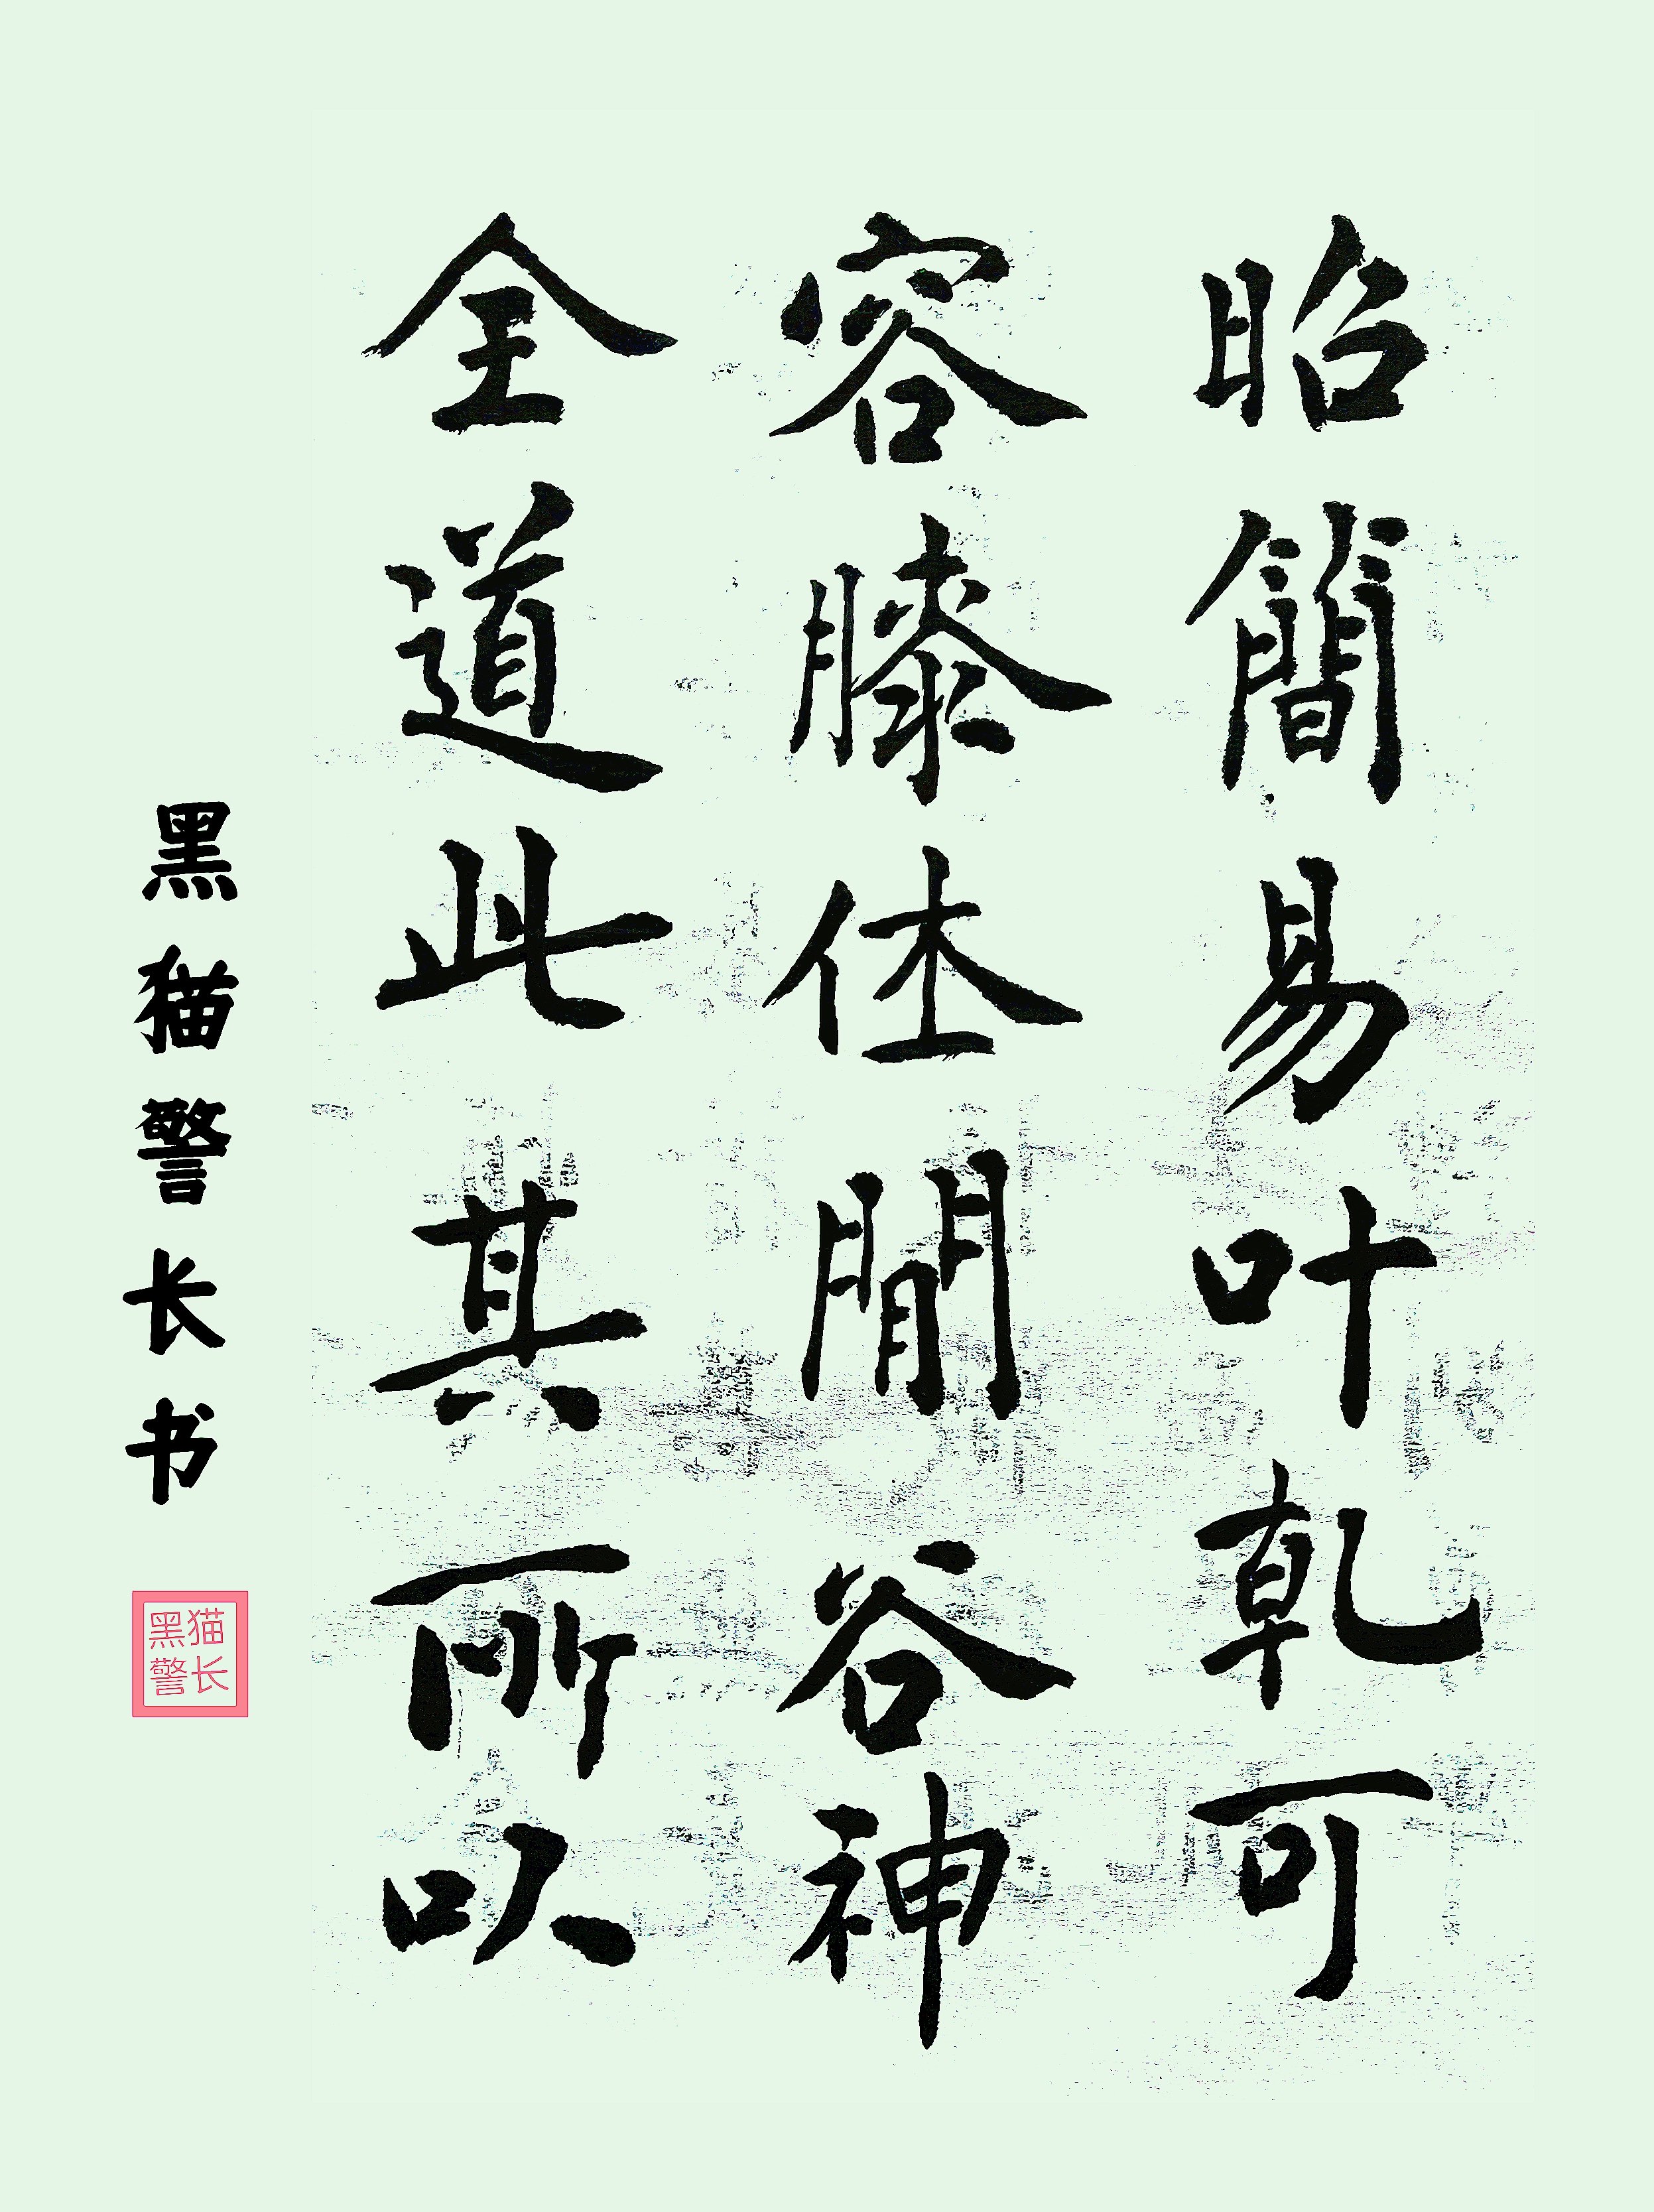 昭簡易叶乹可
容膝休閒谷神
全道此其所以
黑猫警长书
黑猫
警长